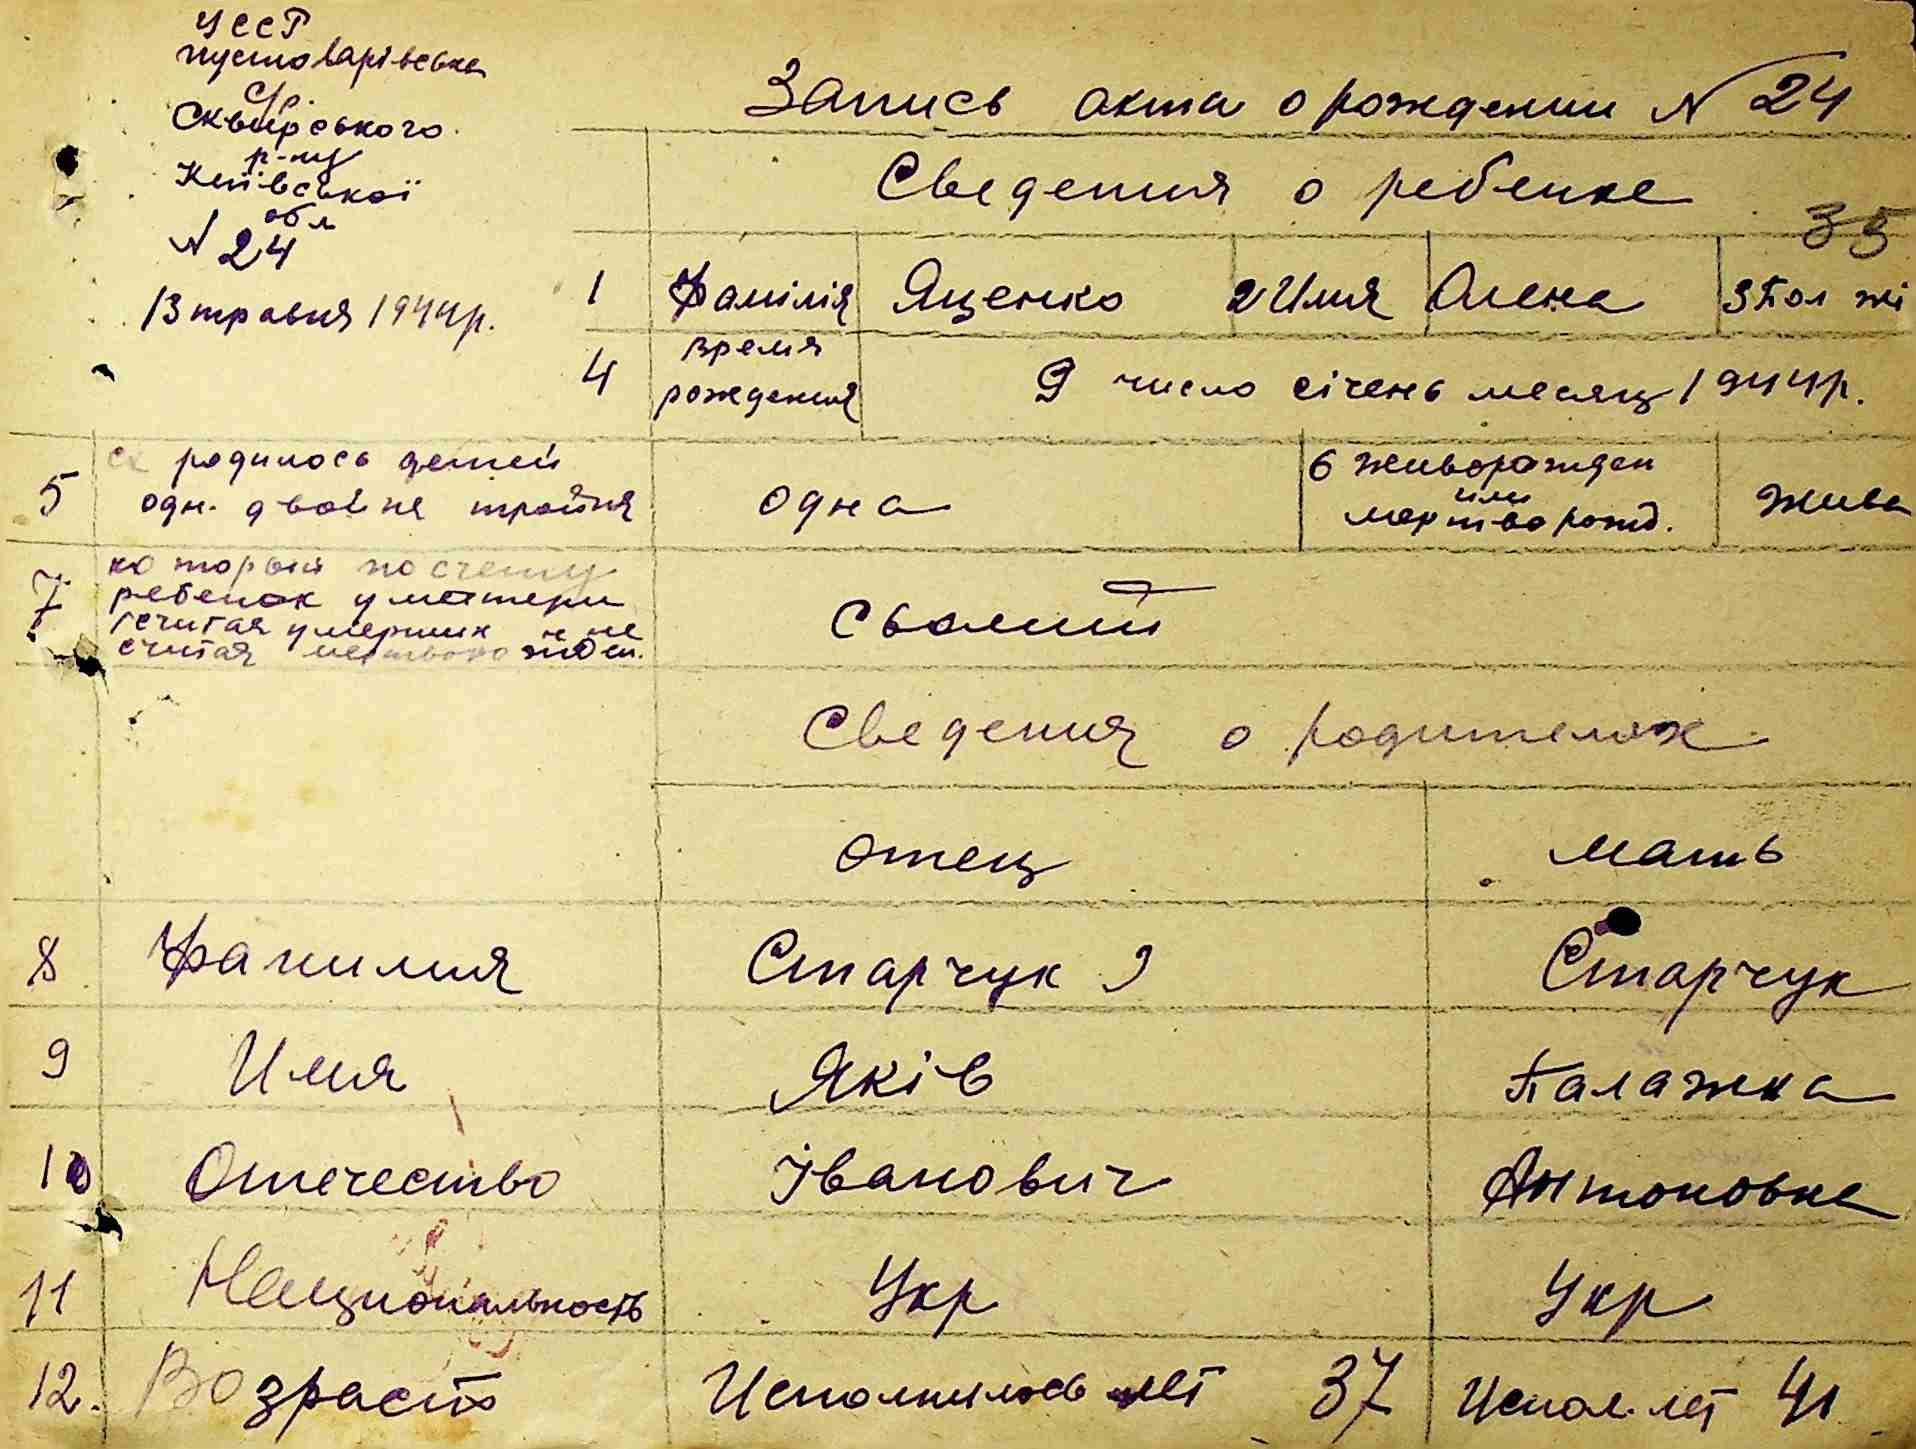 УССР
пустоварівська
с/р.
Сквирського
р-ну
Київської
обл
N 24
13 травня 1944р.
Запись акта о рождении N 24
Сведения о ребенке
35
1 Фамілія Яценко 2 Имя Олена 3 Пол жі
4 время рождения 9 число січень месяц 1944р.
5 ск родилось детей
одн. двойня тройня
одна
6 живорожден
или
мертворожд.
жива
7 который по счету
ребенок у матери
считая умерших и не
считая мертворожден.
сьомий
Сведения о родителях
отец мать
8 Фамилия Старчук Старчук
9 Имя Яків Палажка
10 Отчество Іванович Антоновна
11 Национальность Укр Укр
12. Возраст Исполнилось лет 37 Испол. лет 41